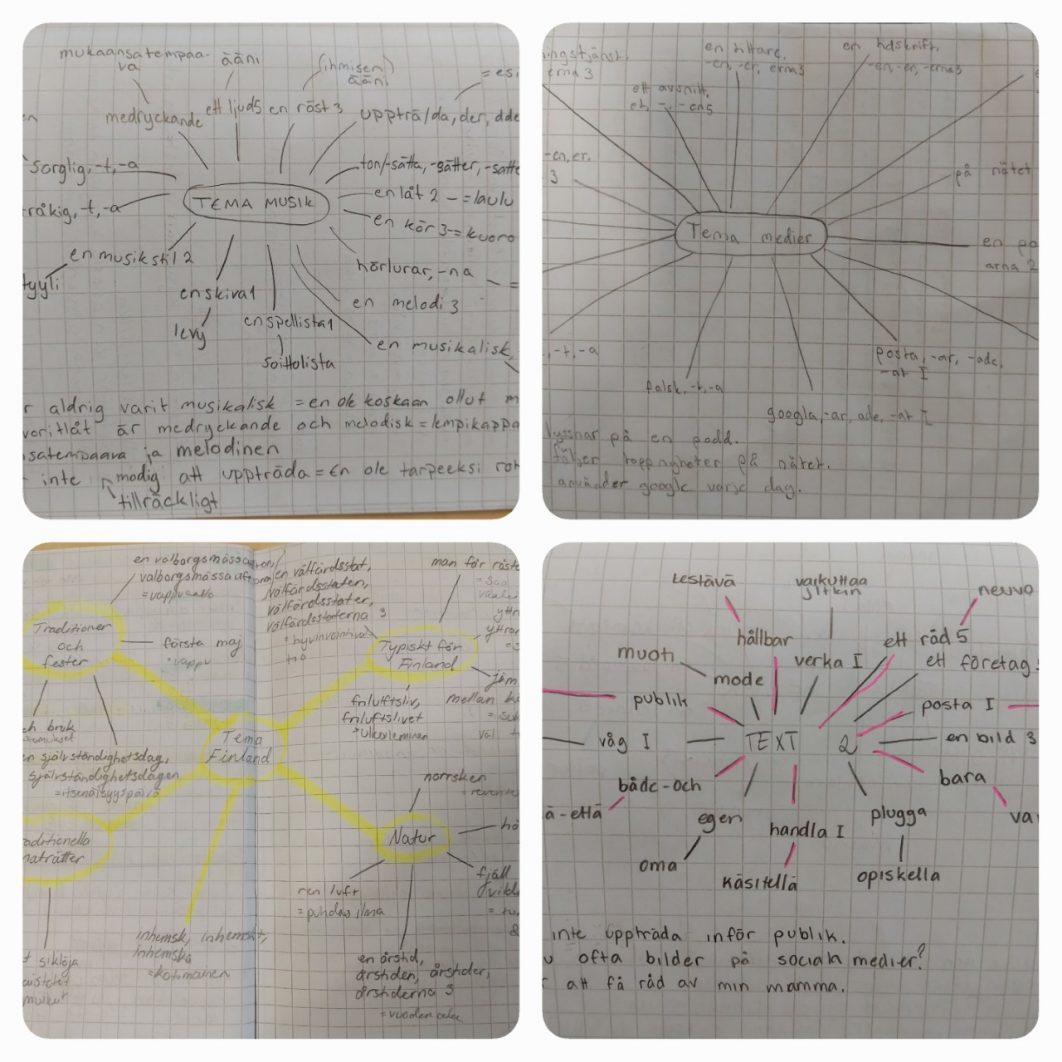 mukaansatempaa-
va
ääni
(ihmisen)
ääni
medryckande
ett ljud5
en röst 3
uppträ/da, der, dde
sorglig, -t, -a
ton/-sätta, -sätter, -satte
TEMA MUSIK
en låt 2 - = laulu
råkig, -t, -a
en kör 3 - = kuoro
en musikstil 2
tyyli
hörlurar, -na
en skiva1
en melodi 3
levy
en spellista1
soittolista
en musikalisk,
r aldrig varit musikalisk = en ole koskaan ollut m
voritlåt är medryckande och melodisk = lempikappa
satempaava ja melodinen
inte modig att uppträda = En ole tarpeeksi roh
tillräckligt
ningstjänst,
erna 3
en tittare,
-en, -er, erna3
ett avsnitt,
et, -, -en5
-en, er,
3
på nätet
Tema medier
en po
arna 2
, -t, -a
posta, -ar, -ade,
-at I
falsk, -t, -a
googla, -ar, ade, -at I
lyssnar på en podd.
följer toppnyheter på nätet.
använder google varje dag.
en välfärdsstat,
välfärdsstaten,
välfärdsstater,
välfärdsstaterna 3
man för
= vappuaatto
Traditioner
och
fester
första maj
= vappu
Typiskt för
Finland
friluftsliv,
friluftslivet
= ulkoileminen
mellan
ch bruk
Tema
Finland
en självständighetsdag,
självständighetsdagen
= itsenäisyyspäivä
norrsken
Natur
aditionella
maträtter
fjäll
ren luft
= puhdas ilma
inhemsk, inhemskt,
inhemska
= kotimainen
t siklöja
en årstid,
årstiden, årstider,
årstiderna 3
= vuoden
kestävä
vaikuttaa
joltkin
neuvo
hållbar
ett råd 5
muoti
verka I
ett företag
mode
publik
posta I
våg I
TEXT 2
en bild 3
både-och
bara
ä-että
egen
handla I
plugga
va
oma
käsitellä
opiskella
inte uppträda inför publik.
u ofta bilder på sociala medier?
r att få råd av min mamma.